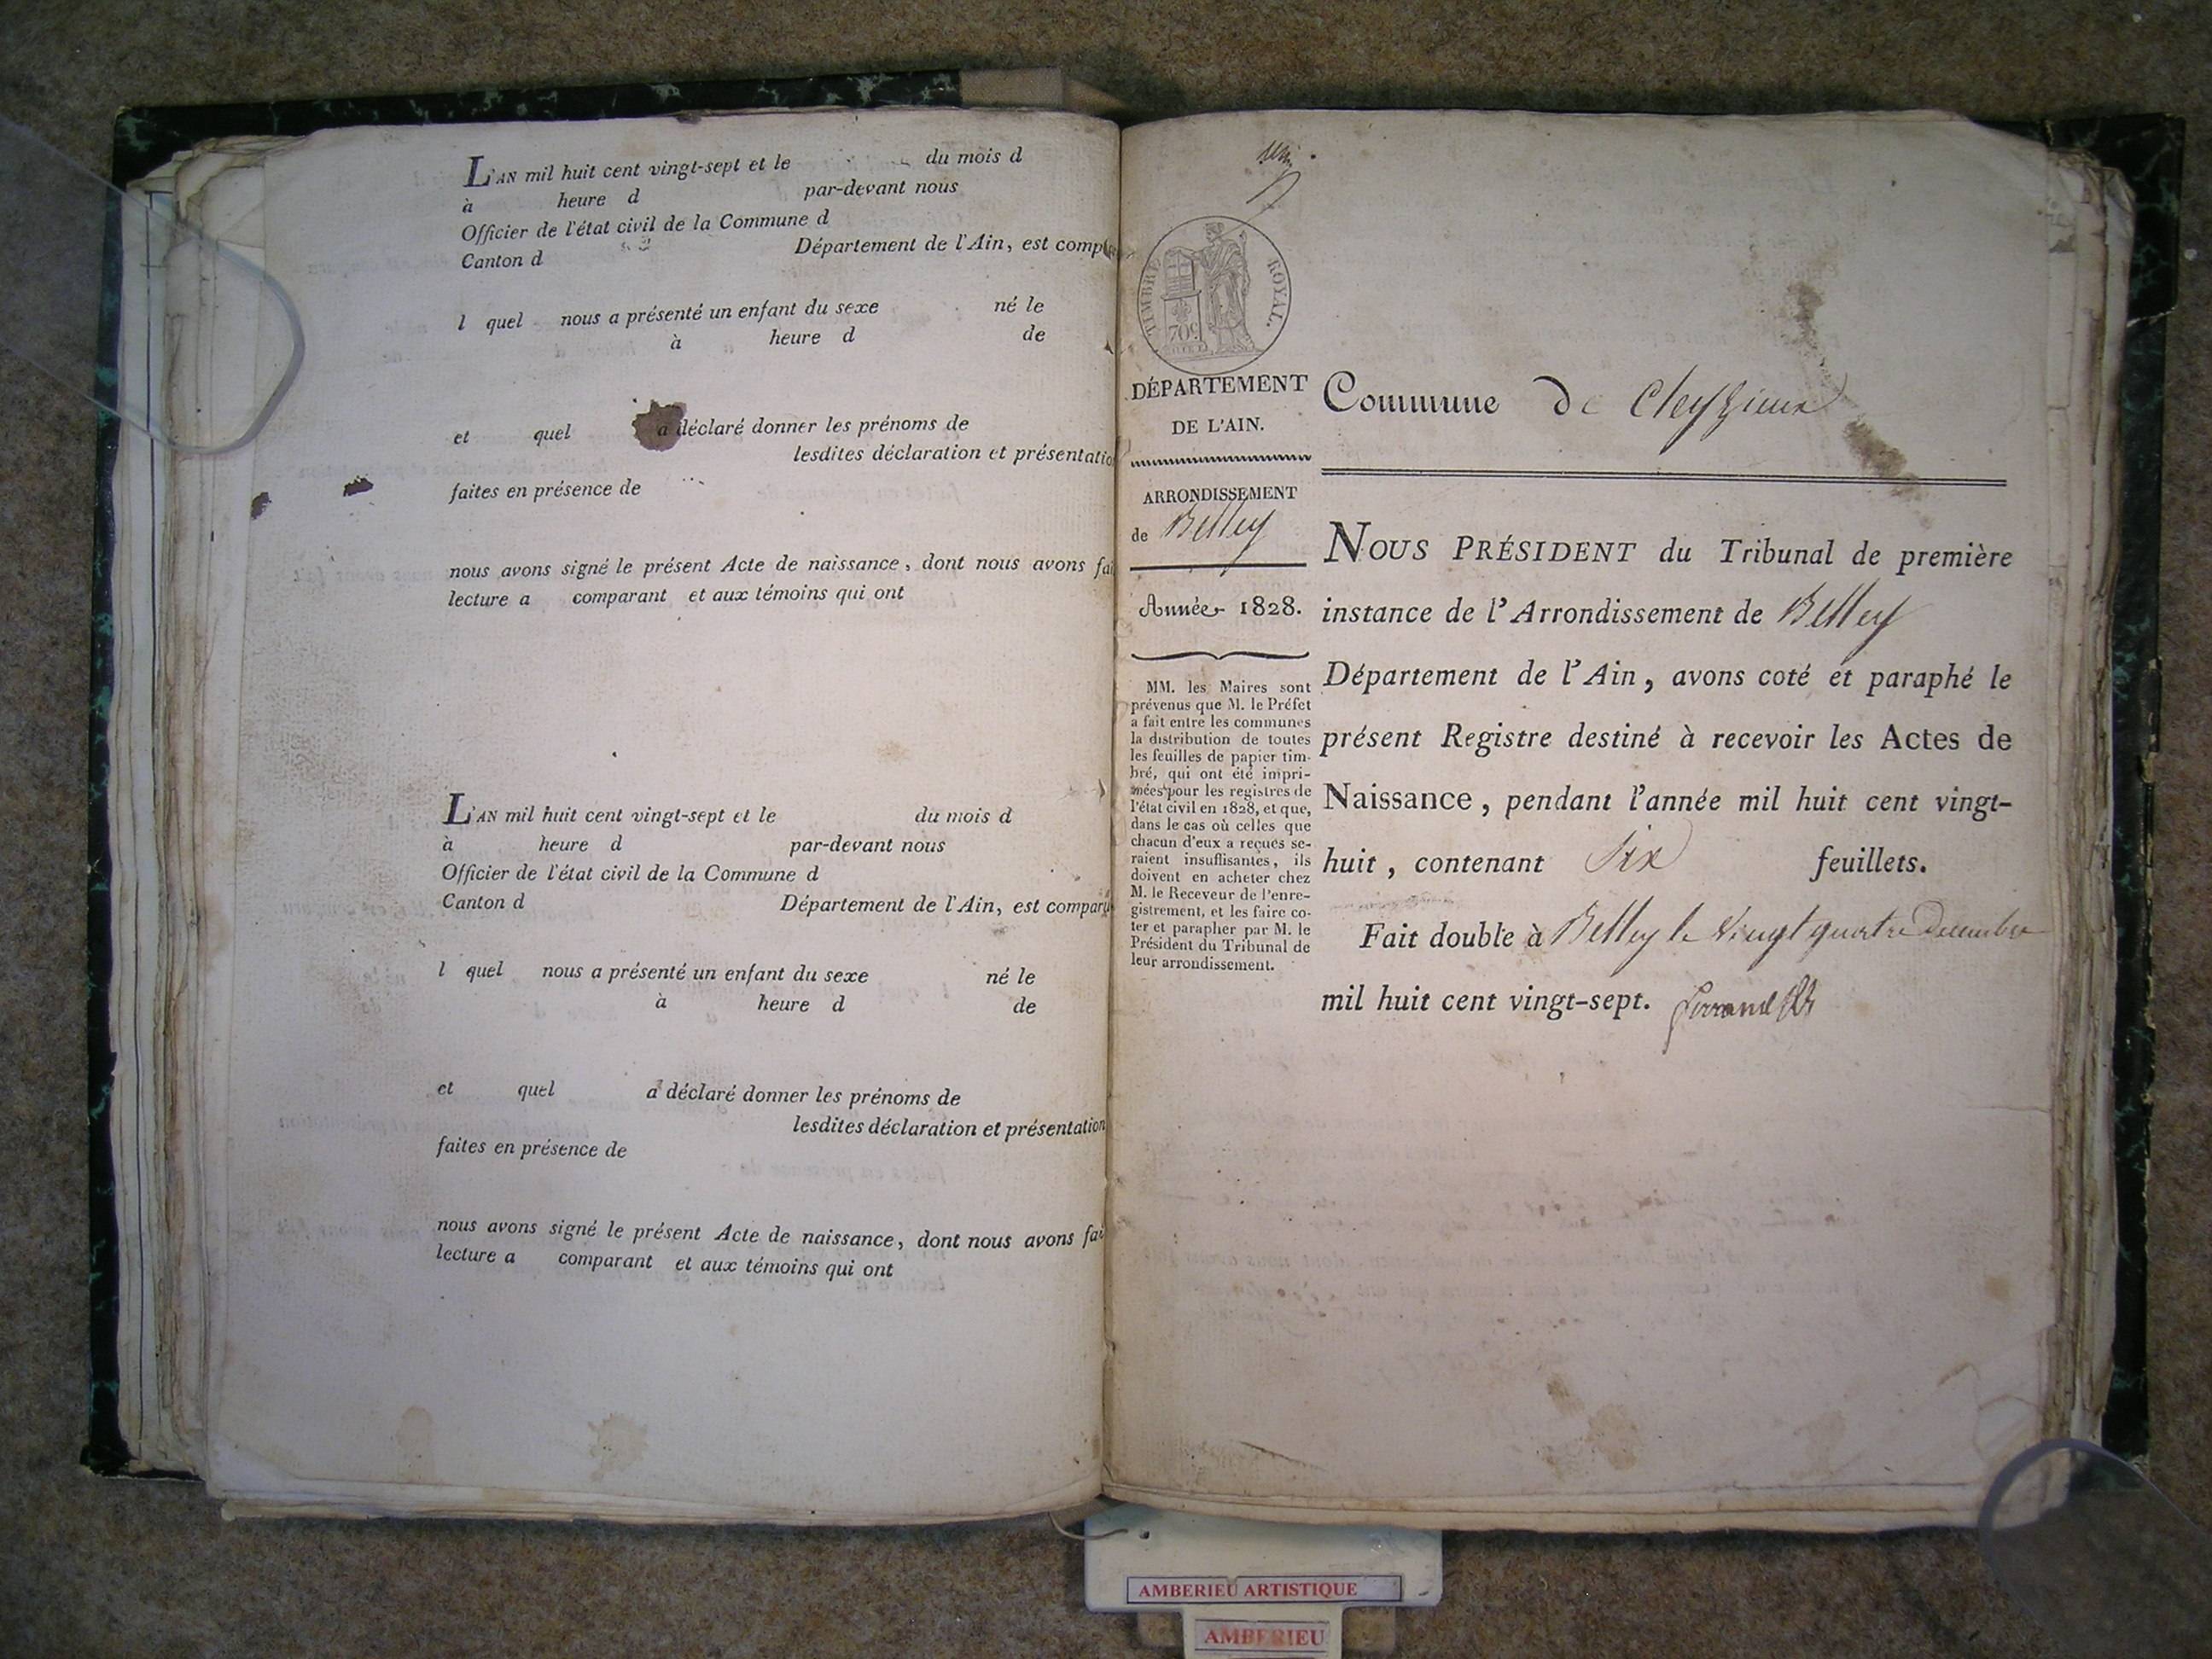 L'AN mil huit cent vingt-sept et le du mois d
à heure d par-devant nous
Officier de l'état civil de la Commune d
Canton d Département de l'Ain, est compa
l quel nous a présenté un enfant du sexe né le
à heure d de
et quel a déclaré donner les prénoms de
lesdites déclaration et présentatio
faites en présence de
nous avons signé le présent Acte de naissance, dont nous avons fai
lecture a comparant et aux témoins qui ont
L'AN mil huit cent vingt-sept et le du mois d
à heure d par-devant nous
Officier de l'état civil de la Commune d
Canton d Département de l'Ain, est comparu
l quel nous a présenté un enfant du sexe né le
à heure d de
et quel a déclaré donner les prénoms de
lesdites déclaration et présentation
faites en présence de
nous avons signé le présent Acte de naissance, dont nous avons fai
lecture a comparant et aux témoins qui ont
TIMBRE ROYAL.
70c
DÉPARTEMENT
DE L'AIN.
ARRONDISSEMENT
de Belley
Année 1828.
MM. les Maires sont
prévenus que M. le Préfet
a fait entre les communes
la distribution de toutes
les feuilles de papier tim-
bré, qui ont été impri-
mées pour les registres de
l'état civil en 1828, et que,
dans le cas où celles que
chacun d'eux a reçues se-
raient insuffisantes, ils
doivent en acheter chez
M. le Receveur de l'enre-
gistrement, et les faire co-
ter et parapher par M. le
Président du Tribunal de
leur arrondissement.
Commune de Cleyzieux
NOUS PRÉSIDENT du Tribunal de première
instance de l'Arrondissement de Belley
Département de l'Ain, avons coté et paraphé le
présent Registre destiné à recevoir les Actes de
Naissance, pendant l'année mil huit cent vingt-
huit, contenant Six feuillets.
Fait double à Belley le Vingt quatre Decembre
mil huit cent vingt-sept.
AMBERIEU ARTISTIQUE
AMBERIEU